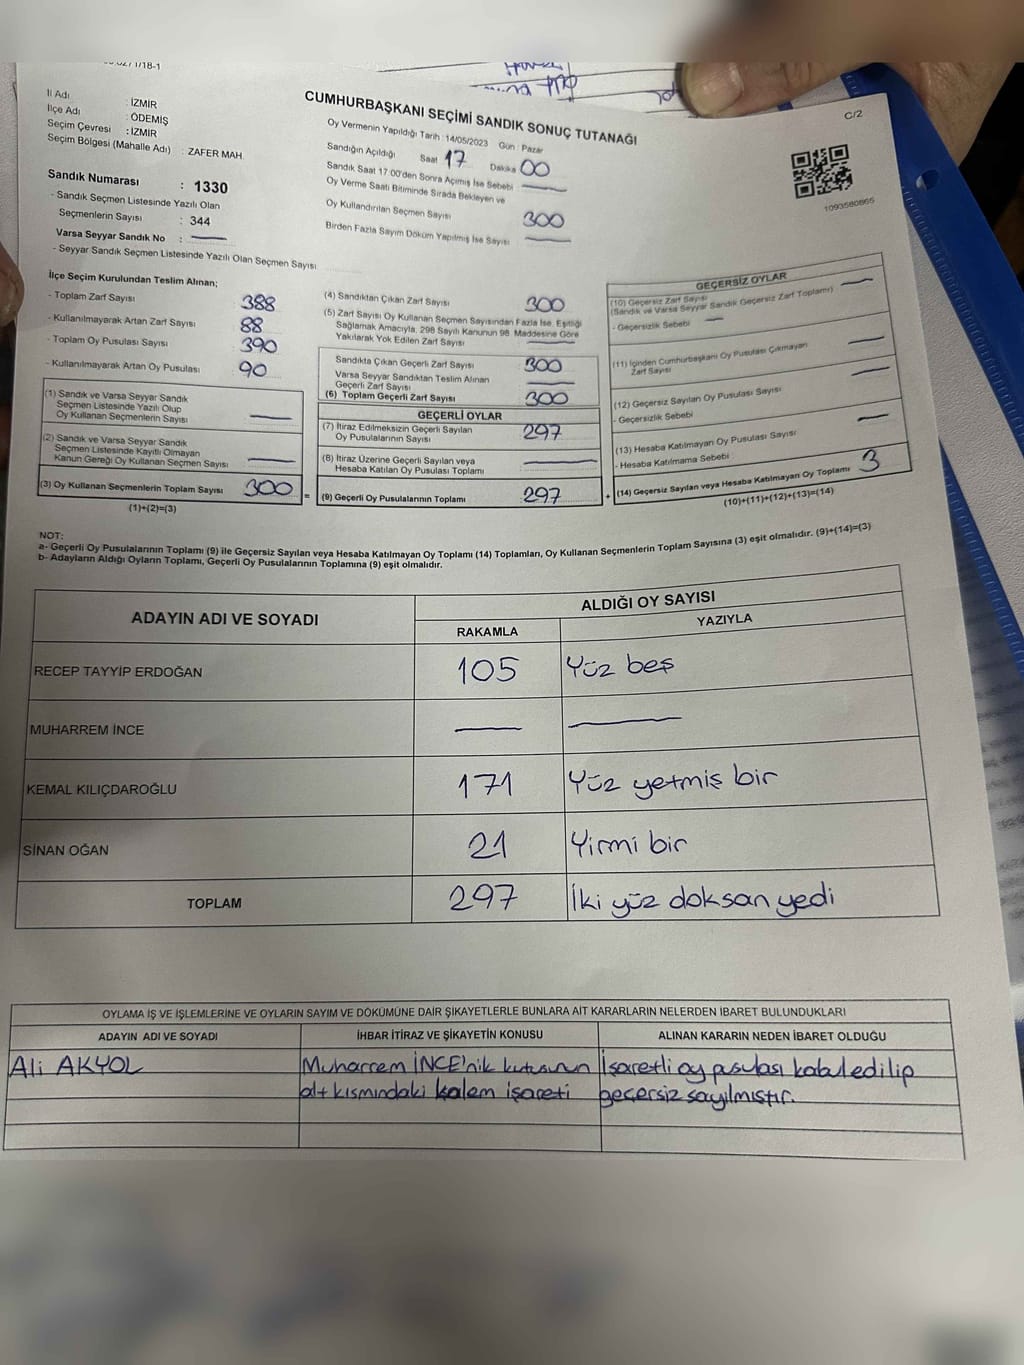 C/2
İl Adı : İZMİR
İlçe Adı : ÖDEMİŞ
Seçim Çevresi : İZMİR
Seçim Bölgesi (Mahalle Adı) : ZAFER MAH.
Sandık Numarası : 1330
- Sandık Seçmen Listesinde Yazılı Olan
Seçmenlerin Sayısı : 344
Varsa Seyyar Sandık No :
- Seyyar Sandık Seçmen Listesinde Yazılı Olan Seçmen Sayısı
CUMHURBAŞKANI SEÇİMİ SANDIK SONUÇ TUTANAĞI
Oy Vermenin Yapıldığı Tarih : 14/05/2023 Gün : Pazar
Sandığın Açıldığı Saat 17 Dakika 00
Sandık Saat 17:00'den Sonra Açımış İse Sebebi
Oy Verme Saati Bitiminde Sırada Bekleyen ve
Oy Kullandırılan Seçmen Sayısı 300
Birden Fazla Sayım Döküm Yapılmış İse Sayısı
1093580865
İlçe Seçim Kurulundan Teslim Alınan;
- Toplam Zarf Sayısı 388
- Kullanılmayarak Artan Zarf Sayısı 88
- Toplam Oy Pusulası Sayısı 390
- Kullanılmayarak Artan Oy Pusulası 90
(1) Sandık ve Varsa Seyyar Sandık
Seçmen Listesinde Yazılı Olup
Oy Kullanan Seçmenlerin Sayısı
(2) Sandık ve Varsa Seyyar Sandık
Seçmen Listesinde Kayıtlı Olmayan
Kanun Gereği Oy Kullanan Seçmen Sayısı
(3) Oy Kullanan Seçmenlerin Toplam Sayısı 300
(1)+(2)=(3)
=
(4) Sandıktan Çıkan Zarf Sayısı 300
(5) Zarf Sayısı Oy Kullanan Seçmen Sayısından Fazla İse, Eşitliği
Sağlamak Amacıyla, 298 Sayılı Kanunun 98. Maddesine Göre
Yakılarak Yok Edilen Zarf Sayısı
Sandıkta Çıkan Geçerli Zarf Sayısı 300
Varsa Seyyar Sandıktan Teslim Alınan
Geçerli Zarf Sayısı
(6) Toplam Geçerli Zarf Sayısı 300
GEÇERLİ OYLAR
(7) İtiraz Edilmeksizin Geçerli Sayılan
Oy Pusulalarının Sayısı 297
(8) İtiraz Üzerine Geçerli Sayılan veya
Hesaba Katılan Oy Pusulası Toplamı
(9) Geçerli Oy Pusulalarının Toplamı 297
+
GEÇERSİZ OYLAR
(10) Geçersiz Zarf Sayısı
(Sandık ve Varsa Seyyar Sandık Geçersiz Zarf Toplamı)
- Geçersizlik Sebebi
(11) İçinden Cumhurbaşkanı Oy Pusulası Çıkmayan
Zarf Sayısı
(12) Geçersiz Sayılan Oy Pusulası Sayısı
- Geçersizlik Sebebi
(13) Hesaba Katılmayan Oy Pusulası Sayısı
- Hesaba Katılmama Sebebi
(14) Geçersiz Sayılan veya Hesaba Katılmayan Oy Toplamı 3
(10)+(11)+(12)+(13)=(14)
NOT:
a- Geçerli Oy Pusulalarının Toplamı (9) ile Geçersiz Sayılan veya Hesaba Katılmayan Oy Toplamı (14) Toplamları, Oy Kullanan Seçmenlerin Toplam Sayısına (3) eşit olmalıdır. (9)+(14)=(3)
b- Adayların Aldığı Oyların Toplamı, Geçerli Oy Pusulalarının Toplamına (9) eşit olmalıdır.
ADAYIN ADI VE SOYADI
ALDIĞI OY SAYISI
RAKAMLA YAZIYLA
RECEP TAYYİP ERDOĞAN 105 Yüz beş
MUHARREM İNCE
KEMAL KILIÇDAROĞLU 171 Yüz yetmiş bir
SİNAN OĞAN 21 Yirmi bir
TOPLAM 297 İki yüz doksan yedi
OYLAMA İŞ VE İŞLEMLERİNE VE OYLARIN SAYIM VE DÖKÜMÜNE DAİR ŞİKAYETLERLE BUNLARA AİT KARARLARIN NELERDEN İBARET BULUNDUKLARI
ADAYIN ADI VE SOYADI İHBAR İTİRAZ VE ŞİKAYETİN KONUSU ALINAN KARARIN NEDEN İBARET OLDUĞU
Ali AKYOL Muharrem İNCE'nik kutusunun İşaretli oy pusulası kabul edilip
alt kısmındaki kalem işareti geçersiz sayılmıştır.